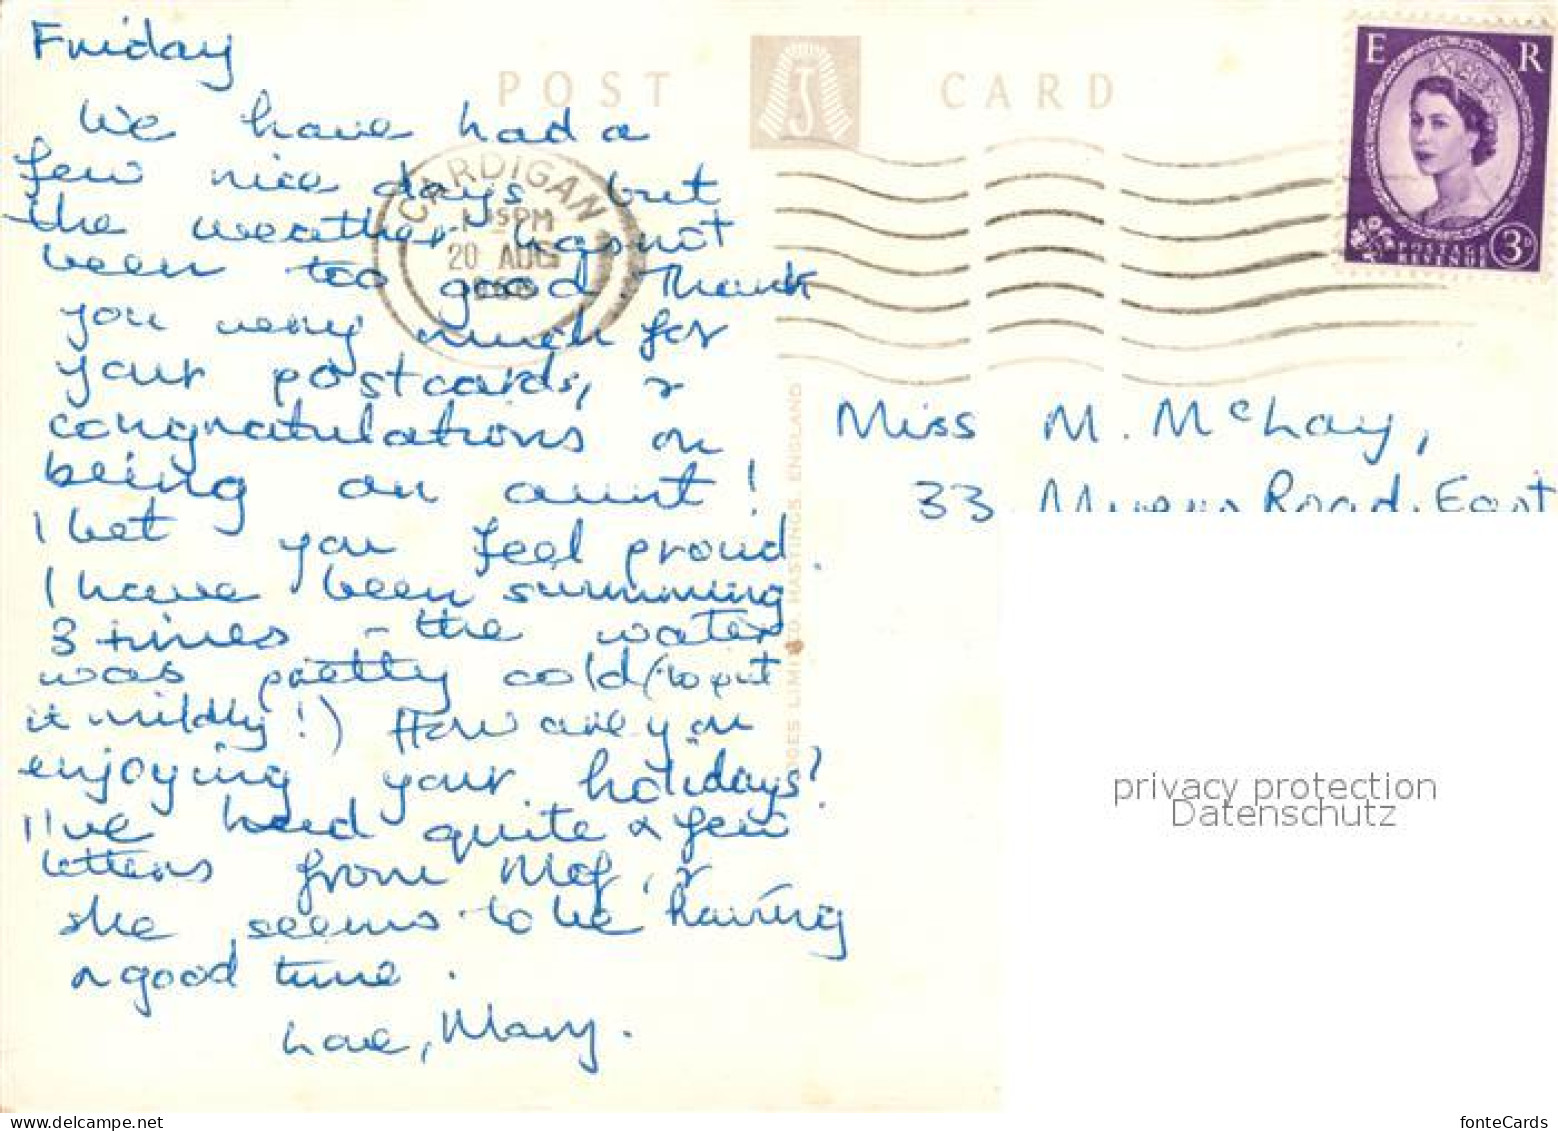 Friday
We have had a
few nice days but
the weather has not
been too good Thank
you very much for
your postcards, &
congratulations on
being an aunt!
I bet you feel proud.
I have been swimming
3 times - the water
was pretty cold (to put
it mildly!) How are you
enjoying your holidays?
I've had quite a few
letters from Meg, &
she seems to be having
a good time.
Love, Mary.
POST CARD
E R
POSTAGE
REVENUE
3D
CARDIGAN
PM
20 AUG
Miss M. McLay,
33 Road, East
LIMITED, HASTINGS, ENGLAND
privacy protection
Datenschutz
fonteCards